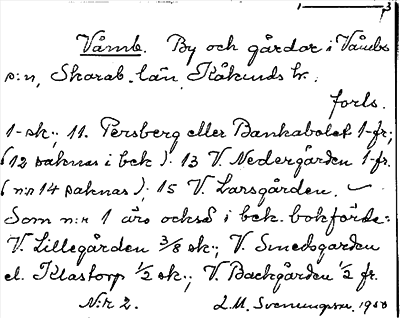 1 3
Våmb. By och gårdar i Våmbs
s:n, Skarab. län, Kåkinds hr.
forts.
1-sk; 11. Persberg eller Bankabolet 1-fr;
(12 saknas i bek); 13 V. Nedergården 1-fr.
(n:r 14 saknas); 15 V. Larsgården.
Som n:r 1 äro också i bek. bokförda:
V. Lillegården 3/8 sk; V. Smedsgården
el. Klastorp 1/2 sk; V. Backgården 1/2 fr.
N:r 2. L.M. Svenungsson. 1950